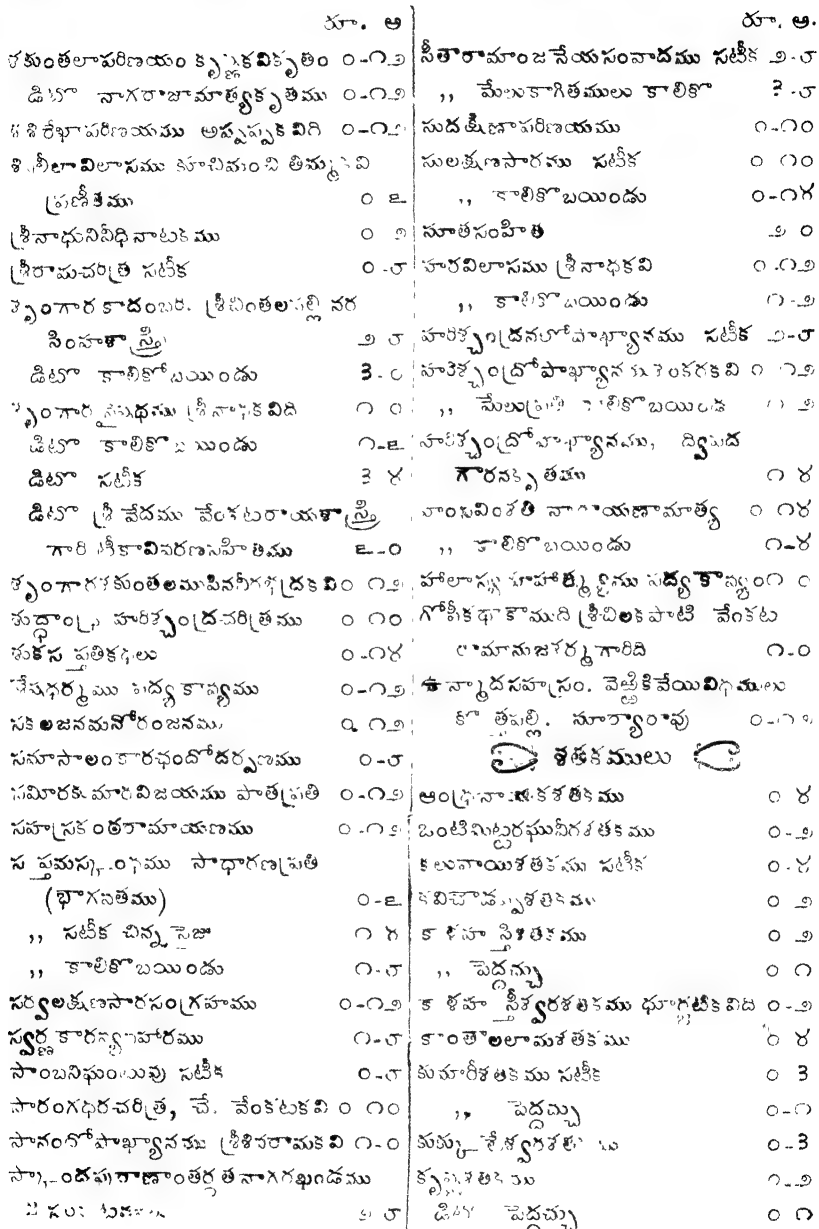 రూ. అ
శకుంతలాపరిణయం కృష్ణకవికృతం ౦-౧౨
డిటో నాగరాజామాత్యకృతము ౦-౧౨
శశిరేఖాపరిణయము అప్పప్పకవిది ౦-౧౨
శివలీలావిలాసము కూచిమంచి తిమ్మకవి
ప్రణీతము ౦ ౬
శ్రీనాథునివీధినాటకము ౦ ౨
శ్రీరామచరిత్ర సటీక ౦-౮
శృంగారకాదంబరి. శ్రీచింతలపల్లి నర
సింహశాస్త్రి ౨ ౮
డిటో కాలికోబయిండు 3-౦
శృంగార నైషధము శ్రీనాథకవిది ౧ ౦
డిటో కాలికోబయిండు ౧-౬
డిటో సటీక 3 ౪
డిటో శ్రీ వేదము వేంకటరాయశాస్త్రి
గారి టీకావివరణసహితము ౬-౦
శృంగారశకుంతలముపిన వీరభద్రకవిం ౧౨
శుద్ధాంధ్ర హరిశ్చంద్రచరిత్రము ౦ ౧౦
శుకసప్తతికథలు ౦-౧౪
శేషధర్మము పద్యకావ్యము ౦-౧౨
సకలజనమనోరంజనము ౦ ౧౨
సమాసాలంకారఛందోదర్పణము ౦-౮
సమీరకుమారవిజయము పాతప్రతి ౦-౧౨
సహస్రకంఠరామాయణము ౦-౧౨
సప్తమస్కంధము సాధారణప్రతి
(భాగవతము) ౦-౬
,, సటీక చిన్నసైజు ౧ ౪
,, కాలికోబయిండు ౧-౮
సర్వలక్షణసారసంగ్రహము ౦-౧౨
స్వర్ణకారవ్యవహారము ౧-౮
సాంబనిఘంటువు సటీక ౦-౮
సారంగధరచరిత్ర, చే. వేంకటకవి ౦ ౧౦
సానందోపాఖ్యానము శ్రీశివరామకవి ౧-౦
స్కాందపురాణాంతర్గత నాగరఖండము
౨ ౮
రూ. అ.
సీతారామాంజనేయసంవాదము సటీక ౨-౮
,, మేలుకాగితములు కాలికో 3-౮
సుదక్షిణాపరిణయము ౧-౧౦
సులక్షణసారము సటీక ౦ ౧౦
,, కాలికోబయిండు ౦-౧౪
సూతసంహిత ౨ ౦
హరవిలాసము శ్రీనాథకవి ౧-౧౨
,, కాలికోబయిండు ౧-౨
హరిశ్చంద్రనలోపాఖ్యానము సటీక ౨-౮
హరిశ్చంద్రోపాఖ్యానము శంకరకవి ౧ ౧౨
,, మేలుప్రతి కాలికోబయిండు ౨
హరిశ్చంద్రోపాఖ్యానము, ద్విపద
గౌరనకృతము ౧ ౪
హంసవింశతి నారాయణామాత్య ౦ ౧౪
,, కాలికోబయిండు ౧-౪
హాలాస్య మాహాత్మ్యము పద్యకావ్యం౧ ౦
గోపీకథాకౌముది శ్రీచిలకపాటి వేంకట
రామానుజశర్మగారిది ౧-౦
ఉన్మాదసహస్రం. వెఱ్ఱికివేయివిధములు
కొత్తపల్లి. సూర్యారావు
శతకములు
ఆంధ్రనాయకశతకము ౦ ౪
ఒంటిమిట్టరఘువీరశతకము ౦-౨
కలువాయిశతకము సటీక ౦-౪
కవిచౌడప్పశతకము ౦ ౨
కాళహస్తిశతకము ౦ ౨
,, పెద్దచ్చు ౦ ౧
కాళహస్తీశ్వరశతకము ధూర్జటికవిది ౦-౨
కాంతాలలామశతకము ౦ ౪
కుమారీశతకము సటీక ౦ 3
,, పెద్దచ్చు ౦-౧
కుక్కుటేశ్వరశతకము ౦-3
కృష్ణశతకము ౧-౨
డిటో పెద్దచ్చు ౦ ౧